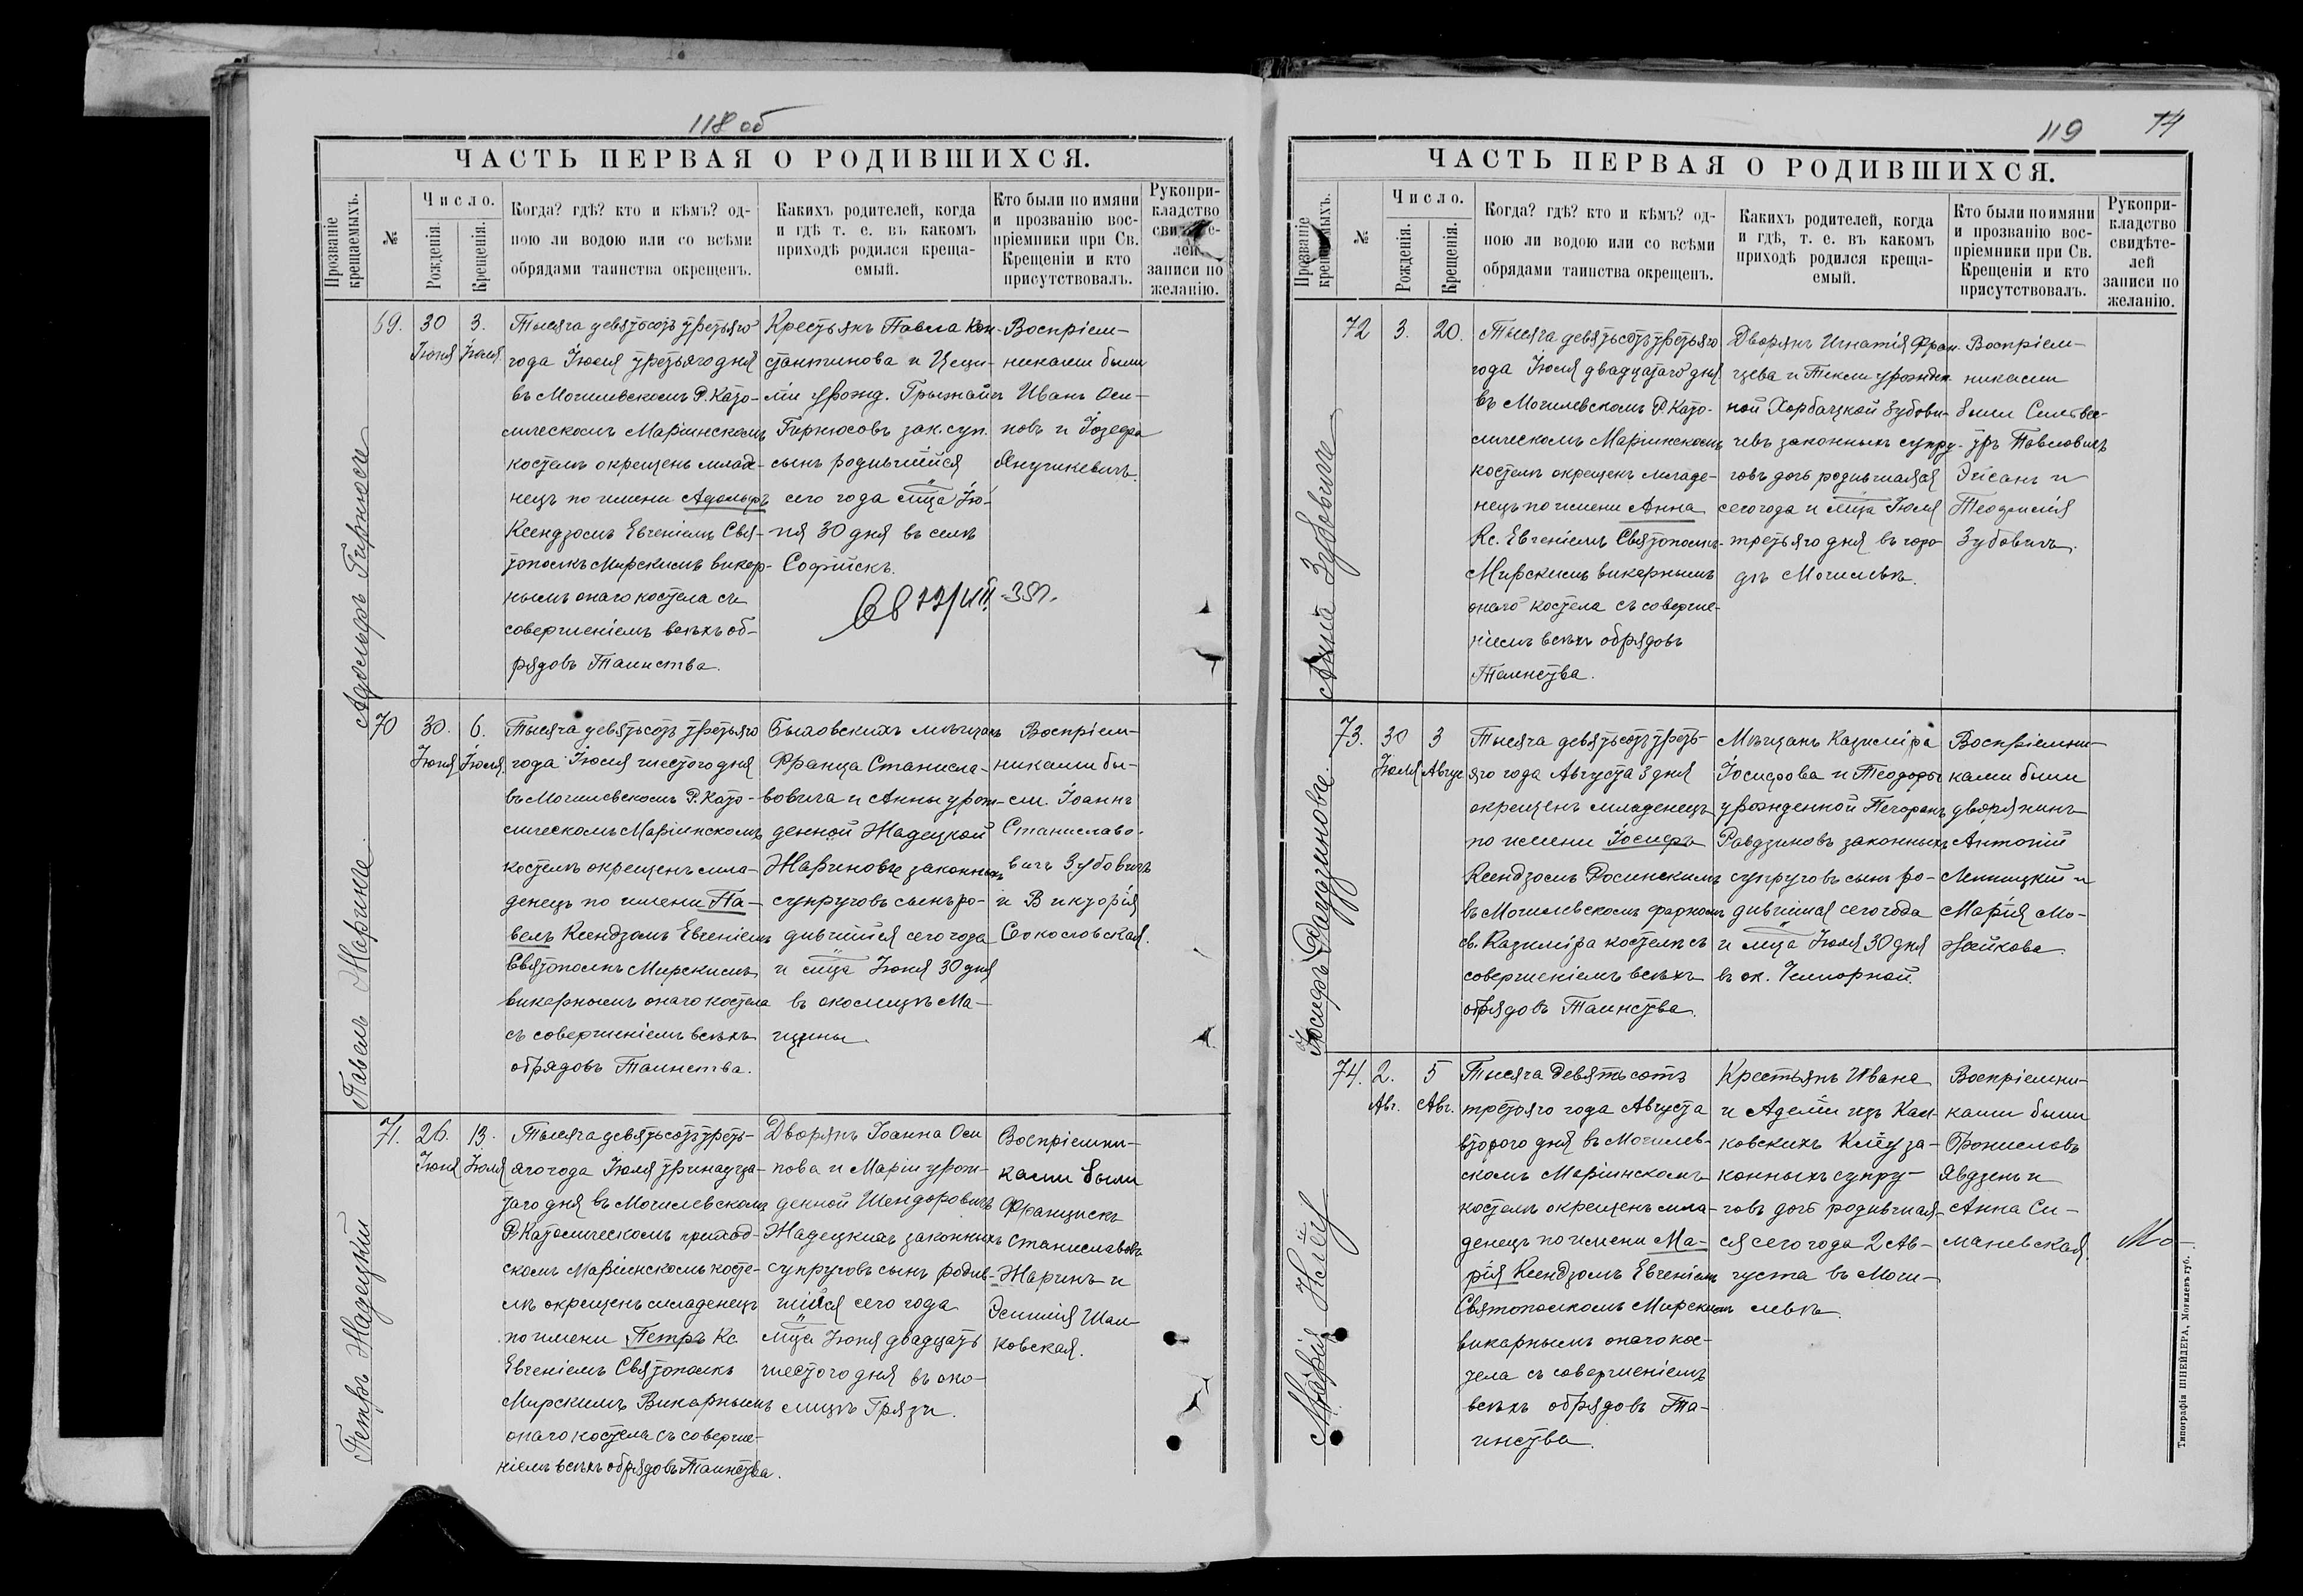 118 об
ЧАСТЬ ПЕРВАЯ О РОДИВШИХСЯ.
Прозваніе крещаемыхъ.
№
Число.
Рожденія.
Крещенія.
Когда? гдѣ? кто и кѣмъ? од-
ною ли водою или со всѣми
обрядами таинства окрещенъ.
Какихъ родителей, когда
и гдѣ т. е. въ какомъ
приходѣ родился креща-
емый.
Кто были по имяни
и прозванію вос-
пріемники при Св.
Крещеніи и кто
присутствовалъ.
Рукопри-
кладство
свидѣте-
лей
записи по
желанію.
Адольфъ
69.
30 Іюня
3. Іюля
Тысяча девятьсотъ третьяго
года Іюля третьяго дня
въ Могилевскомъ Р. Като-
лическомъ Маріинскомъ
костелѣ окрещенъ младе-
нецъ по имени Адольфъ
Ксендзомъ Евгеніемъ Свя-
тополкъ Мирскимъ викар-
нымъ онаго костела съ
совершеніемъ всѣхъ об-
рядовъ Таинства.
Крестьянъ Павла Кон-
стантинова и Цеци-
ліи урожд.
зак. суп.
сынъ родившійся
сего года мца Ію-
ня 30 дня въ селѣ
Софійскъ.
Воспріем-
никами были
Иванъ Оси-
повъ и Іозефа
Янушкевичъ.
Павелъ Жаринъ
70
30. Іюня
6. Іюля
Тысяча девятьсотъ третьяго
года Іюля шестого дня
въ Могилевскомъ Р. Като-
лическомъ Маріинскомъ
костелѣ окрещенъ мла-
денецъ по имени Па-
велъ Ксендзомъ Евгеніемъ
Святополкъ Мирскимъ
викарнымъ онаго костела
съ совершеніемъ всѣхъ
обрядовъ Таинства.
Быховскихъ мѣщанъ
Франца Станисла-
вовича и Анны урож-
денной Жадецкой
Жариновъ законныхъ
супруговъ сынъ ро-
дившійся сего года
и мца Іюня 30 дня
въ околицѣ Ма-
щины.
Воспріем-
никами бы-
ли Іоаннъ
Станиславо-
вичъ Зубовичъ
и Викторія
Соколовская.
Петръ Жадецкій
71.
26. Іюня
13. Іюля
Тысяча девятьсотъ треть-
яго года Іюля тринадца-
таго дня въ Могилевскомъ
Р. Католическомъ приход-
скомъ Маріинскомъ косте-
лѣ окрещенъ младенецъ
по имени Петръ Кс.
Евгеніемъ Святополкъ
Мирскимъ Викарнымъ
онаго костела съ соверше-
ніемъ всѣхъ обрядовъ Таинства.
Дворянъ Іоанна Оси
пова и Маріи урож-
денной Шендоровичъ
Жадецкихъ законныхъ
супруговъ сынъ родив-
шійся сего года
мца Іюня двадцать
шестого дня въ око-
лицѣ Грязи.
Воспріемни-
ками были
Францискъ
Станиславовъ
Жаринъ и
Эмилія Шал-
ковская.
119
74
ЧАСТЬ ПЕРВАЯ О РОДИВШИХСЯ.
Прозваніе крещаемыхъ.
№
Число.
Рожденія.
Крещенія.
Когда? гдѣ? кто и кѣмъ? од-
ною ли водою или со всѣми
обрядами таинства окрещенъ.
Какихъ родителей, когда
и гдѣ, т. е. въ какомъ
приходѣ родился креща-
емый.
Кто были по имяни
и прозванію вос-
пріемники при Св.
Крещеніи и кто
присутствовалъ.
Рукопри-
кладство
свидѣте-
лей
записи по
желанію.
Анна Зубовичъ
72
3.
20.
Тысяча девятьсотъ третьяго
года Іюля двадцатаго дня
въ Могилевскомъ Р. Като-
лическомъ Маріинскомъ
костелѣ окрещенъ младе-
нецъ по имени Анна
Кс. Евгеніемъ Святополкъ-
Мирскимъ викарнымъ
онаго костела съ соверше-
ніемъ всѣхъ обрядовъ
Таинства.
Дворянъ Игнатія Фран-
цева и Текли урожден
ной Хорбацкой Зубови-
чевъ законныхъ супру-
говъ дочь родившаяся
сего года и мца Іюля
третьяго дня въ горо-
дѣ Могилевѣ.
Воспріем-
никами
были Сильве-
стръ Павловичъ
Эйсанъ и
Теофилія
Зубовичъ.
Іосифъ
73.
30 Іюля
3 Август
Тысяча девятьсотъ треть-
яго года Августа 3 дня
окрещенъ младенецъ
по имени Іосифъ
Ксендзомъ Росинскимъ
въ Могилевскомъ фарномъ
св. Казиміра костелѣ съ
совершеніемъ всѣхъ
обрядовъ Таинства.
Мѣщанъ Казиміра
Іосифова и Теодоры
урожденной
законныхъ
супруговъ сынъ ро-
дившійся сего года
и мца Іюля 30 дня
въ ок. Чемнорной.
Воспріемни-
ками были
дворянинъ
Антоній
Липницкій и
Марія Мо-
жейкова.
Марія
74.
2. Авг.
5 Авг.
Тысяча девятьсотъ
третьяго года Августа
второго дня въ Могилев-
скомъ Маріинскомъ
костелѣ окрещенъ мла-
денецъ по имени Ма-
рія Ксендзомъ Евгеніемъ
Святополкомъ Мирскимъ
викарнымъ онаго кос-
тела съ совершеніемъ
всѣхъ обрядовъ Та-
инства.
Крестьянъ Ивана
и Аделіи изъ
за-
конныхъ супру-
говъ дочь родившая-
ся сего года 2 Ав-
густа въ Моги-
левѣ.
Воспріемни-
ками были
Брониславъ
Явдзенъ и
Анна Си-
маневская.
Типографія ШНЕЙДЕРА, Могилевъ губ.